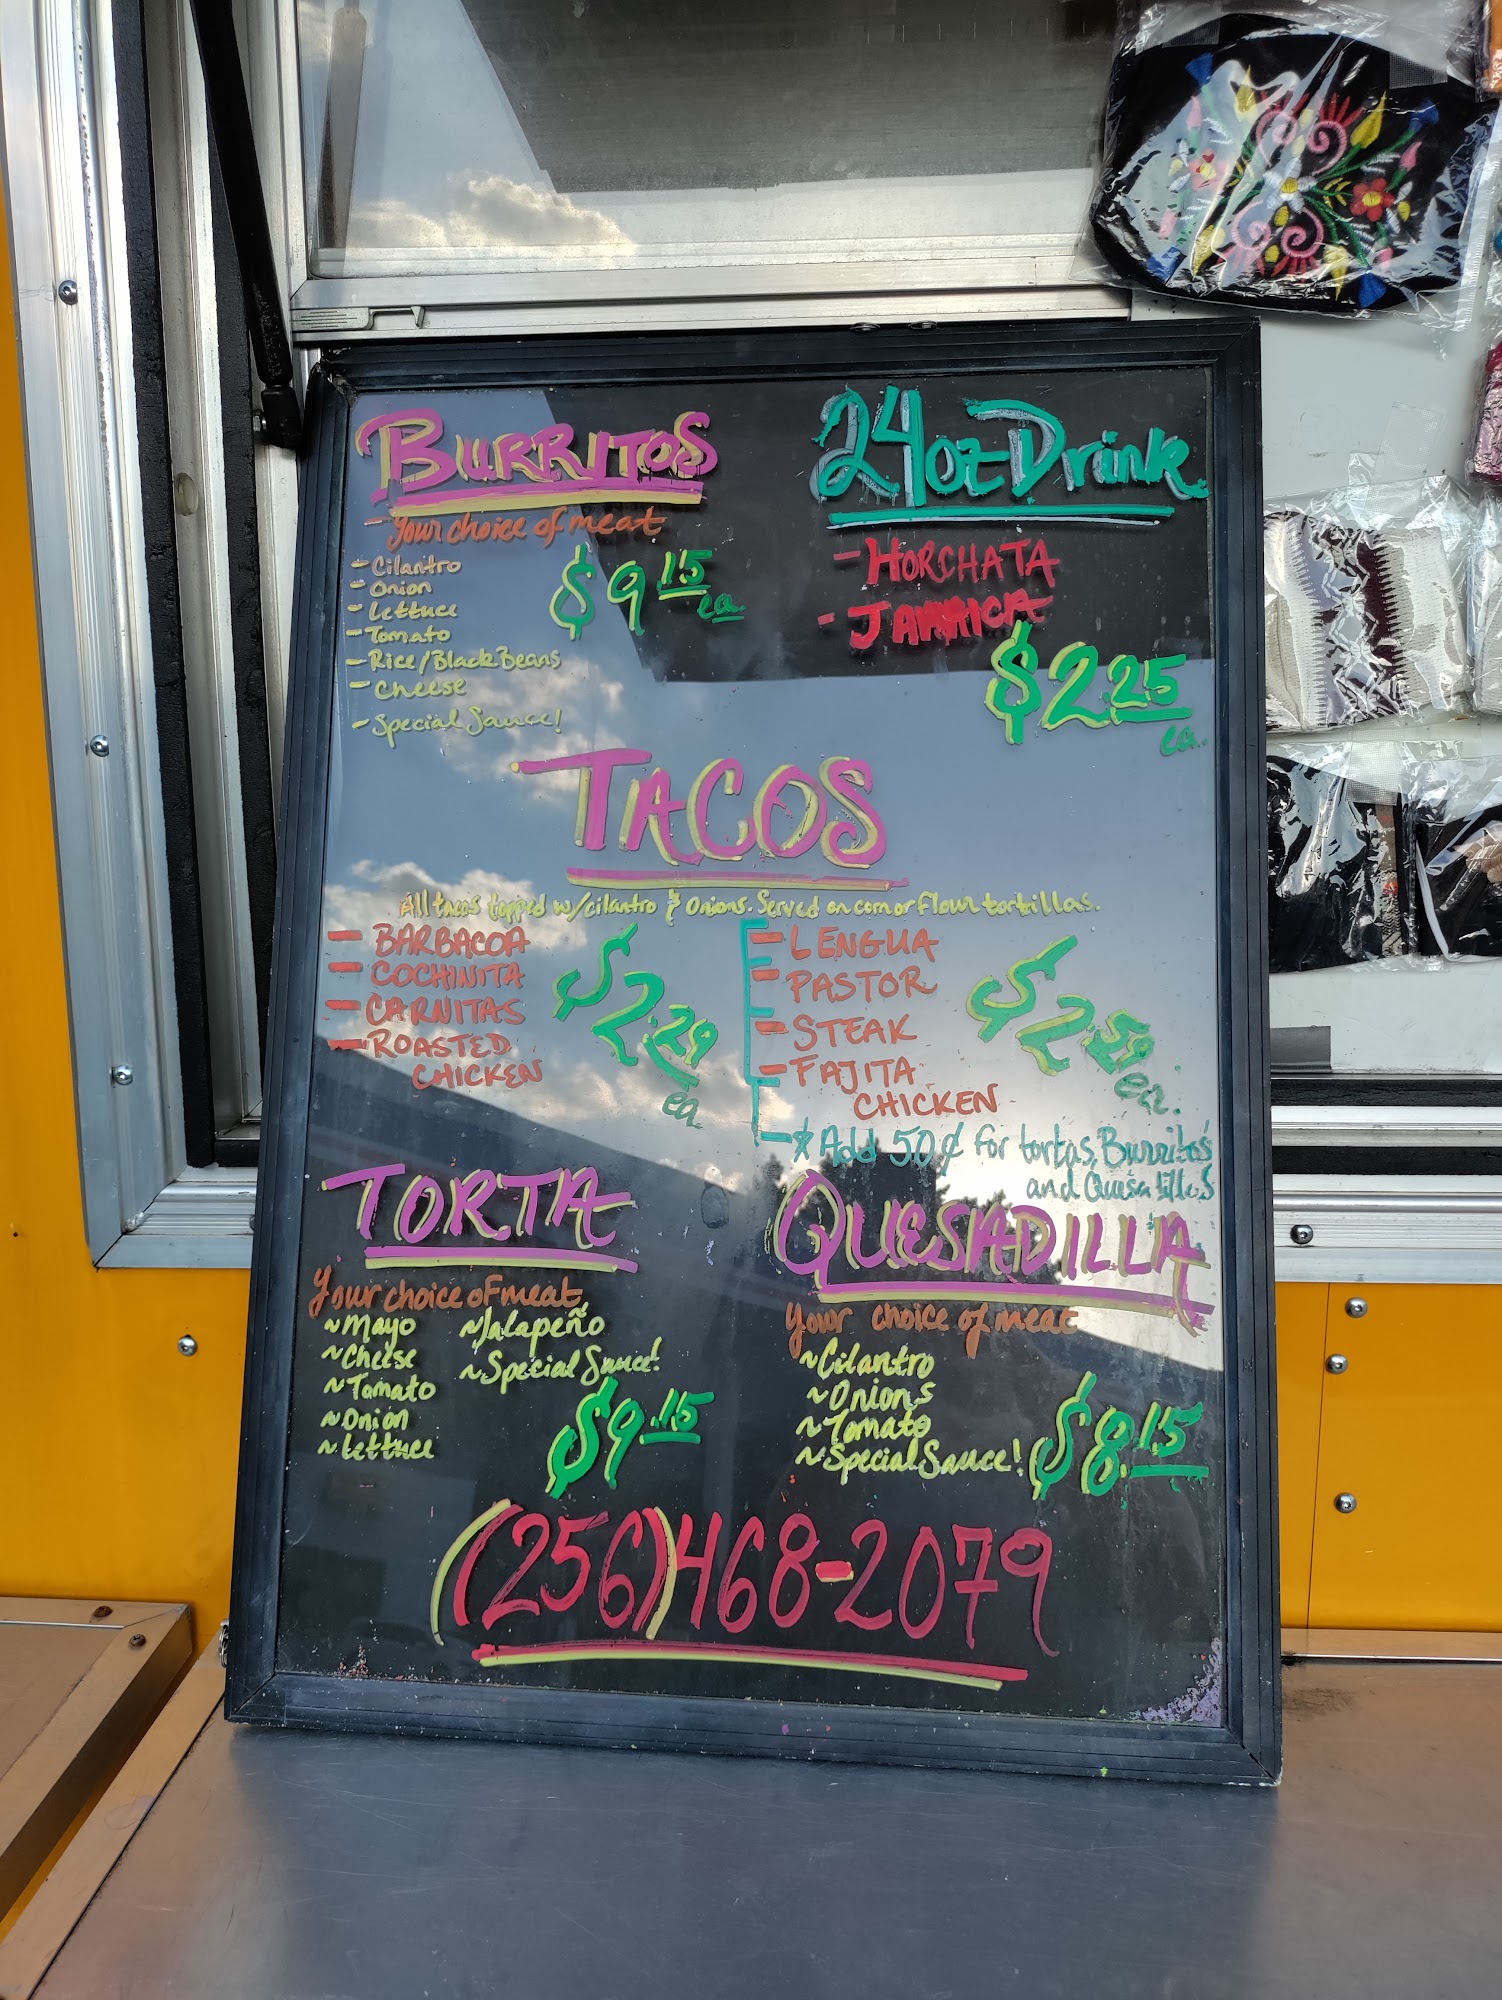 BURRITOS
- Your choice of meat
- Cilantro
- Onion
- Lettuce
- Tomato
- Rice/Black Beans
- Cheese
- Special Sauce!
$9.15 ea.
24oz Drink
- HORCHATA
- JAMAICA
$2.25 ea.
TACOS
All tacos topped w/cilantro & Onions. Served on corn or flour tortillas.
- BARBACOA
- COCHINITA
- CARNITAS
- ROASTED
CHICKEN
$2.29 ea
- LENGUA
- PASTOR
- STEAK
- FAJITA
CHICKEN
$2.59 ea.
* Add 50¢ for tortas, Burritos
and Quesadillas
TORTA
Your choice of meat
~Mayo
~Cheese
~Tomato
~Onion
~Lettuce
~Jalapeño
~Special Sauce!
$9.15
QUESADILLA
Your choice of meat
~Cilantro
~Onions
~Tomato
~Special Sauce!
$8.15
(256)468-2079